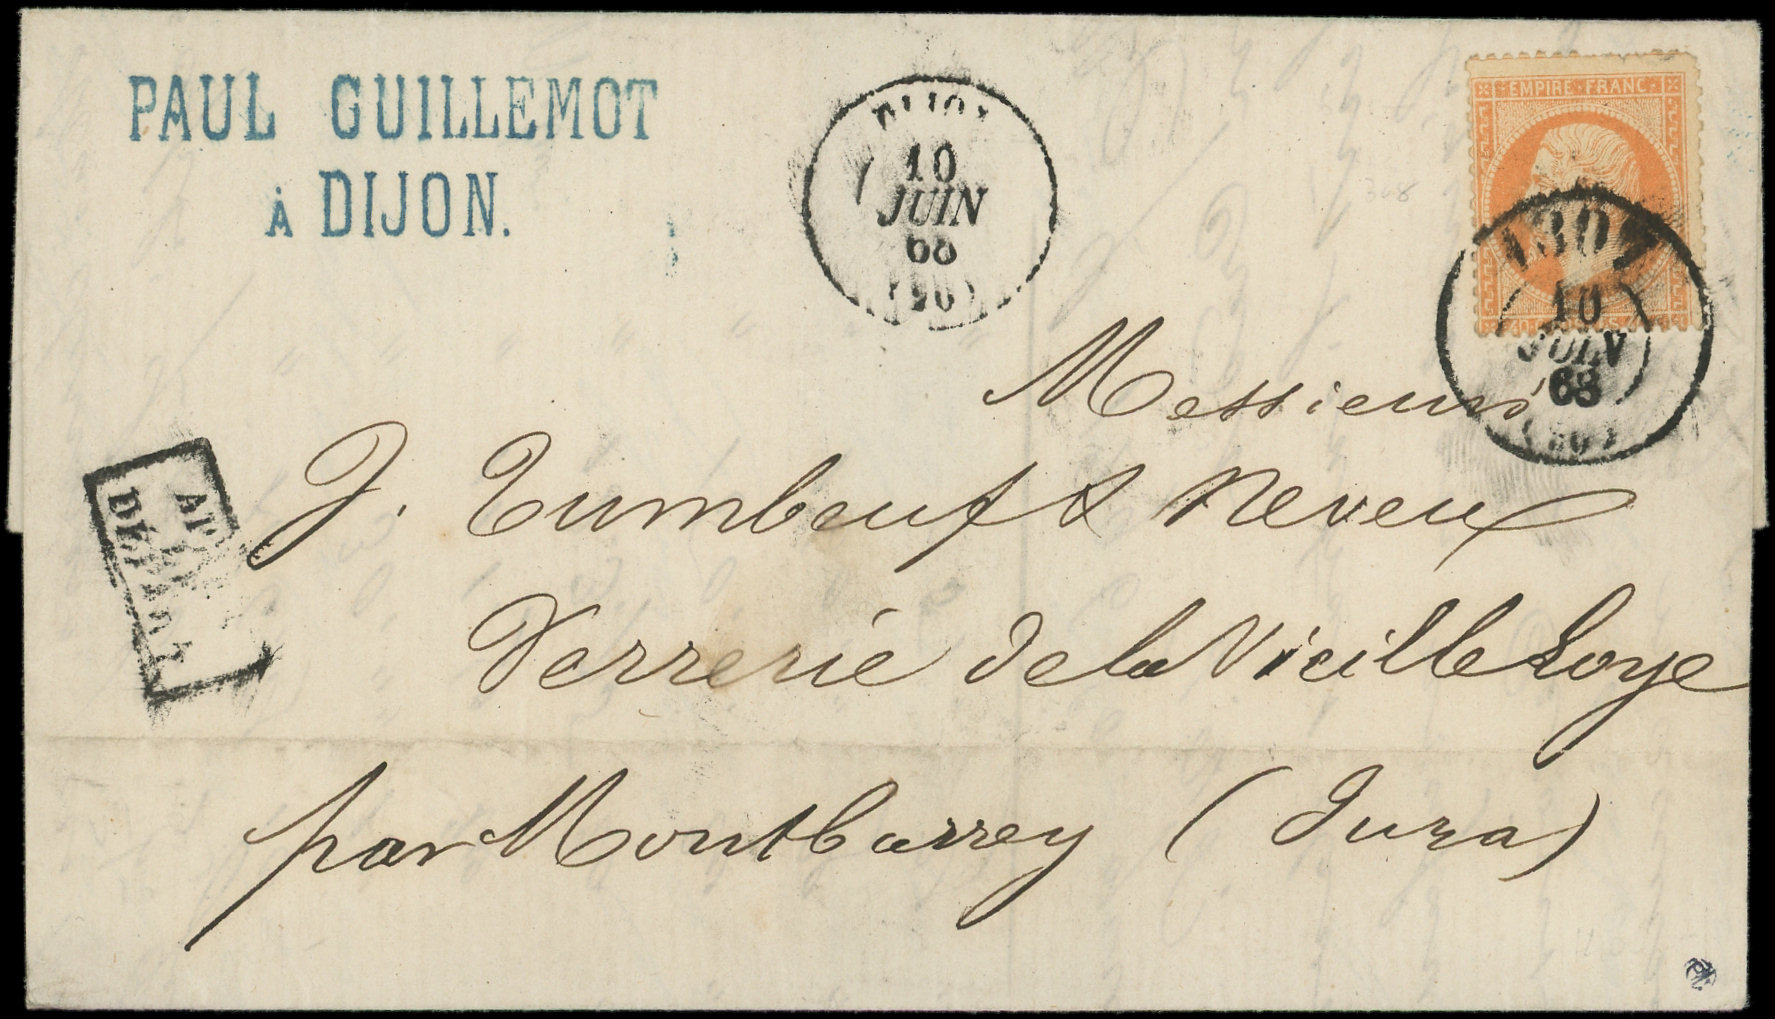 PAUL GUILLEMOT
À DIJON.
DIJON
10
JUIN
68
(20)
EMPIRE FRANC
1307
10
JUIN
68
(20)
Messieurs
J. Tumbeuf & Neveu
Verrerie de la Vieille Loye
par Montbarrey (Jura)